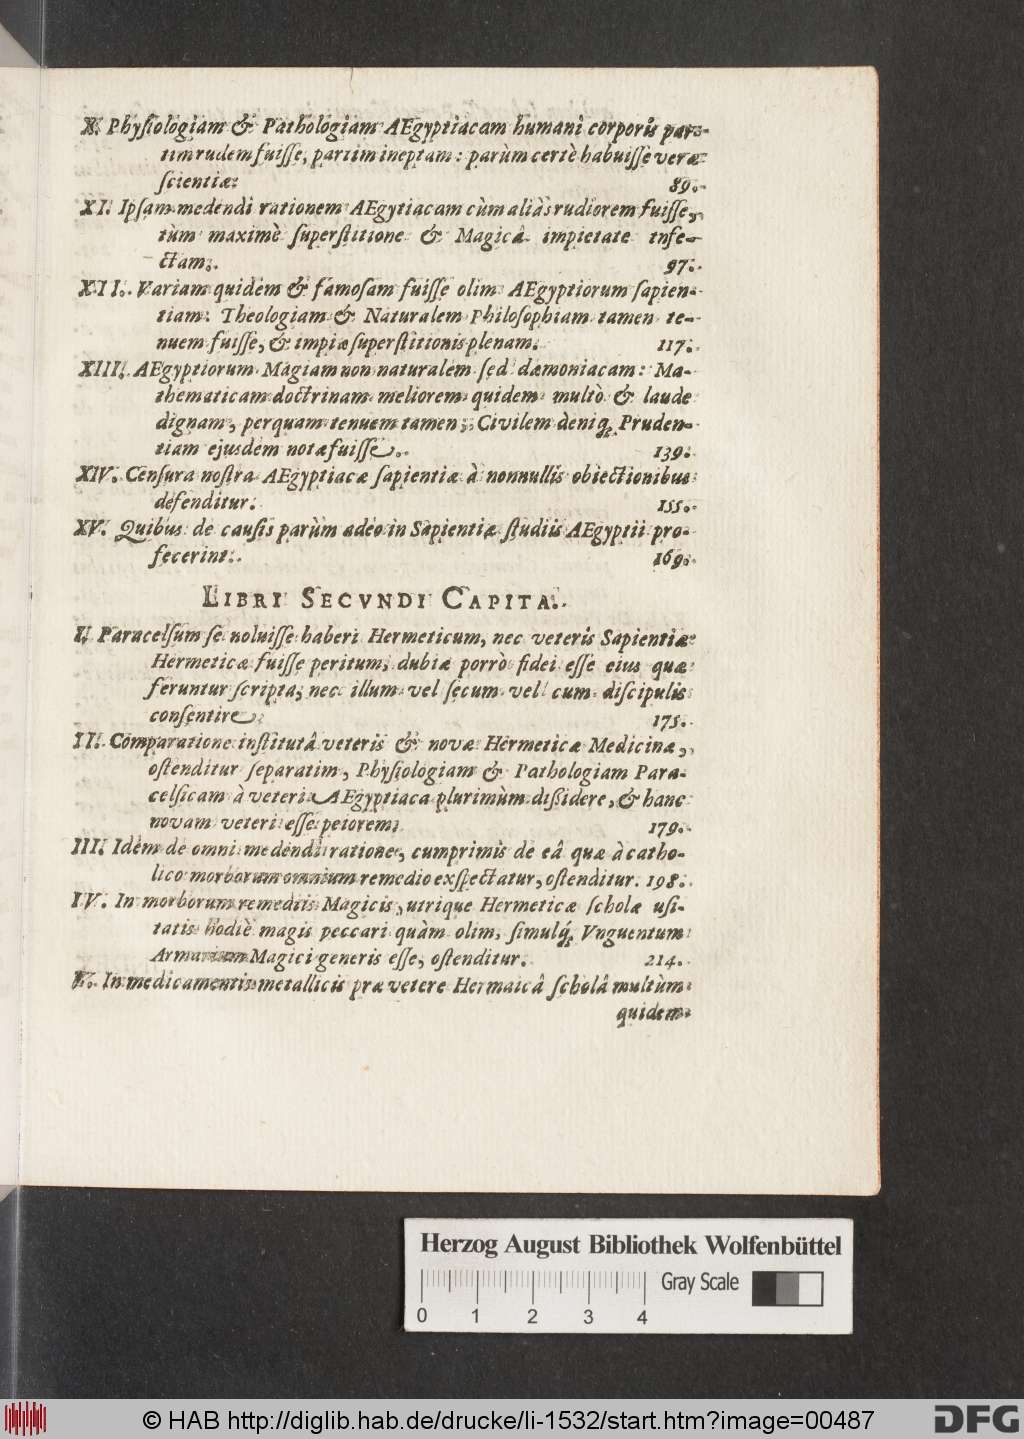 X. Physiologiam & Pathologiam AEgyptiacam humani corporis par-
tim rudem fuiſſe, partim ineptam: parùm certè habuiſſe veræ
ſcientiæ. 89.
XI. Ipſam medendi rationem AEgytiacam cùm aliàs rudiorem fuiſſe,
tùm maximè ſuperſtitione & Magicâ impietate infe-
ctam. 97.
XII. Variam quidem & famoſam fuiſſe olim AEgyptiorum ſapien-
tiam: Theologiam & Naturalem Philoſophiam tamen te-
nuem fuiſſe, & impiæ ſuperſtitionis plenam. 117.
XIII. AEgyptiorum Magiam non naturalem ſed dæmoniacam: Ma-
thematicam doctrinam meliorem quidem multò & laude
dignam, perquam tenuem tamen; Civilem deniq; Pruden-
tiam ejuſdem notæ fuiſſe. 139.
XIV. Cenſura noſtra AEgyptiacæ ſapientiæ à nonnullis obiectionibus
defenditur. 155.
XV. Quibus de cauſis parùm adeo in Sapientiæ ſtudiis AEgyptii pro-
fecerint. 169.
LIBRI SECVNDI CAPITA.
I. Paracelſum ſe noluiſſe haberi Hermeticum, nec veteris Sapientiæ
Hermeticæ fuiſſe peritum, dubiæ porrò fidei eſſe eius quæ
feruntur ſcripta, nec illum vel ſecum vel cum diſcipulis
conſentire. 175.
II. Comparatione inſtitutâ veteris & novæ Hermeticæ Medicinæ,
oſtenditur ſeparatim, Phyſiologiam & Pathologiam Para-
celſicam à veteri AEgyptiaca plurimùm diſſidere, & hanc
novam veteri eſſe peiorem. 179.
III. Idem de omni medendi ratione, cumprimis de eâ quæ à catho-
lico morborum omnium remedio exſpectatur, oſtenditur. 198.
IV. In morborum remediis Magicis, utrique Hermeticæ ſcholæ uſi-
tatis hodiè magis peccari quàm olim, ſimulq́; Vnguentum
Armarium Magici generis eſſe, oſtenditur. 214.
V. In medicamentis metallicis præ vetere Hermaicâ ſcholâ multùm
quidem
Herzog August Bibliothek Wolfenbüttel
Gray Scale
0 1 2 3 4
© HAB http://diglib.hab.de/drucke/li-1532/start.htm?image=00487
DFG